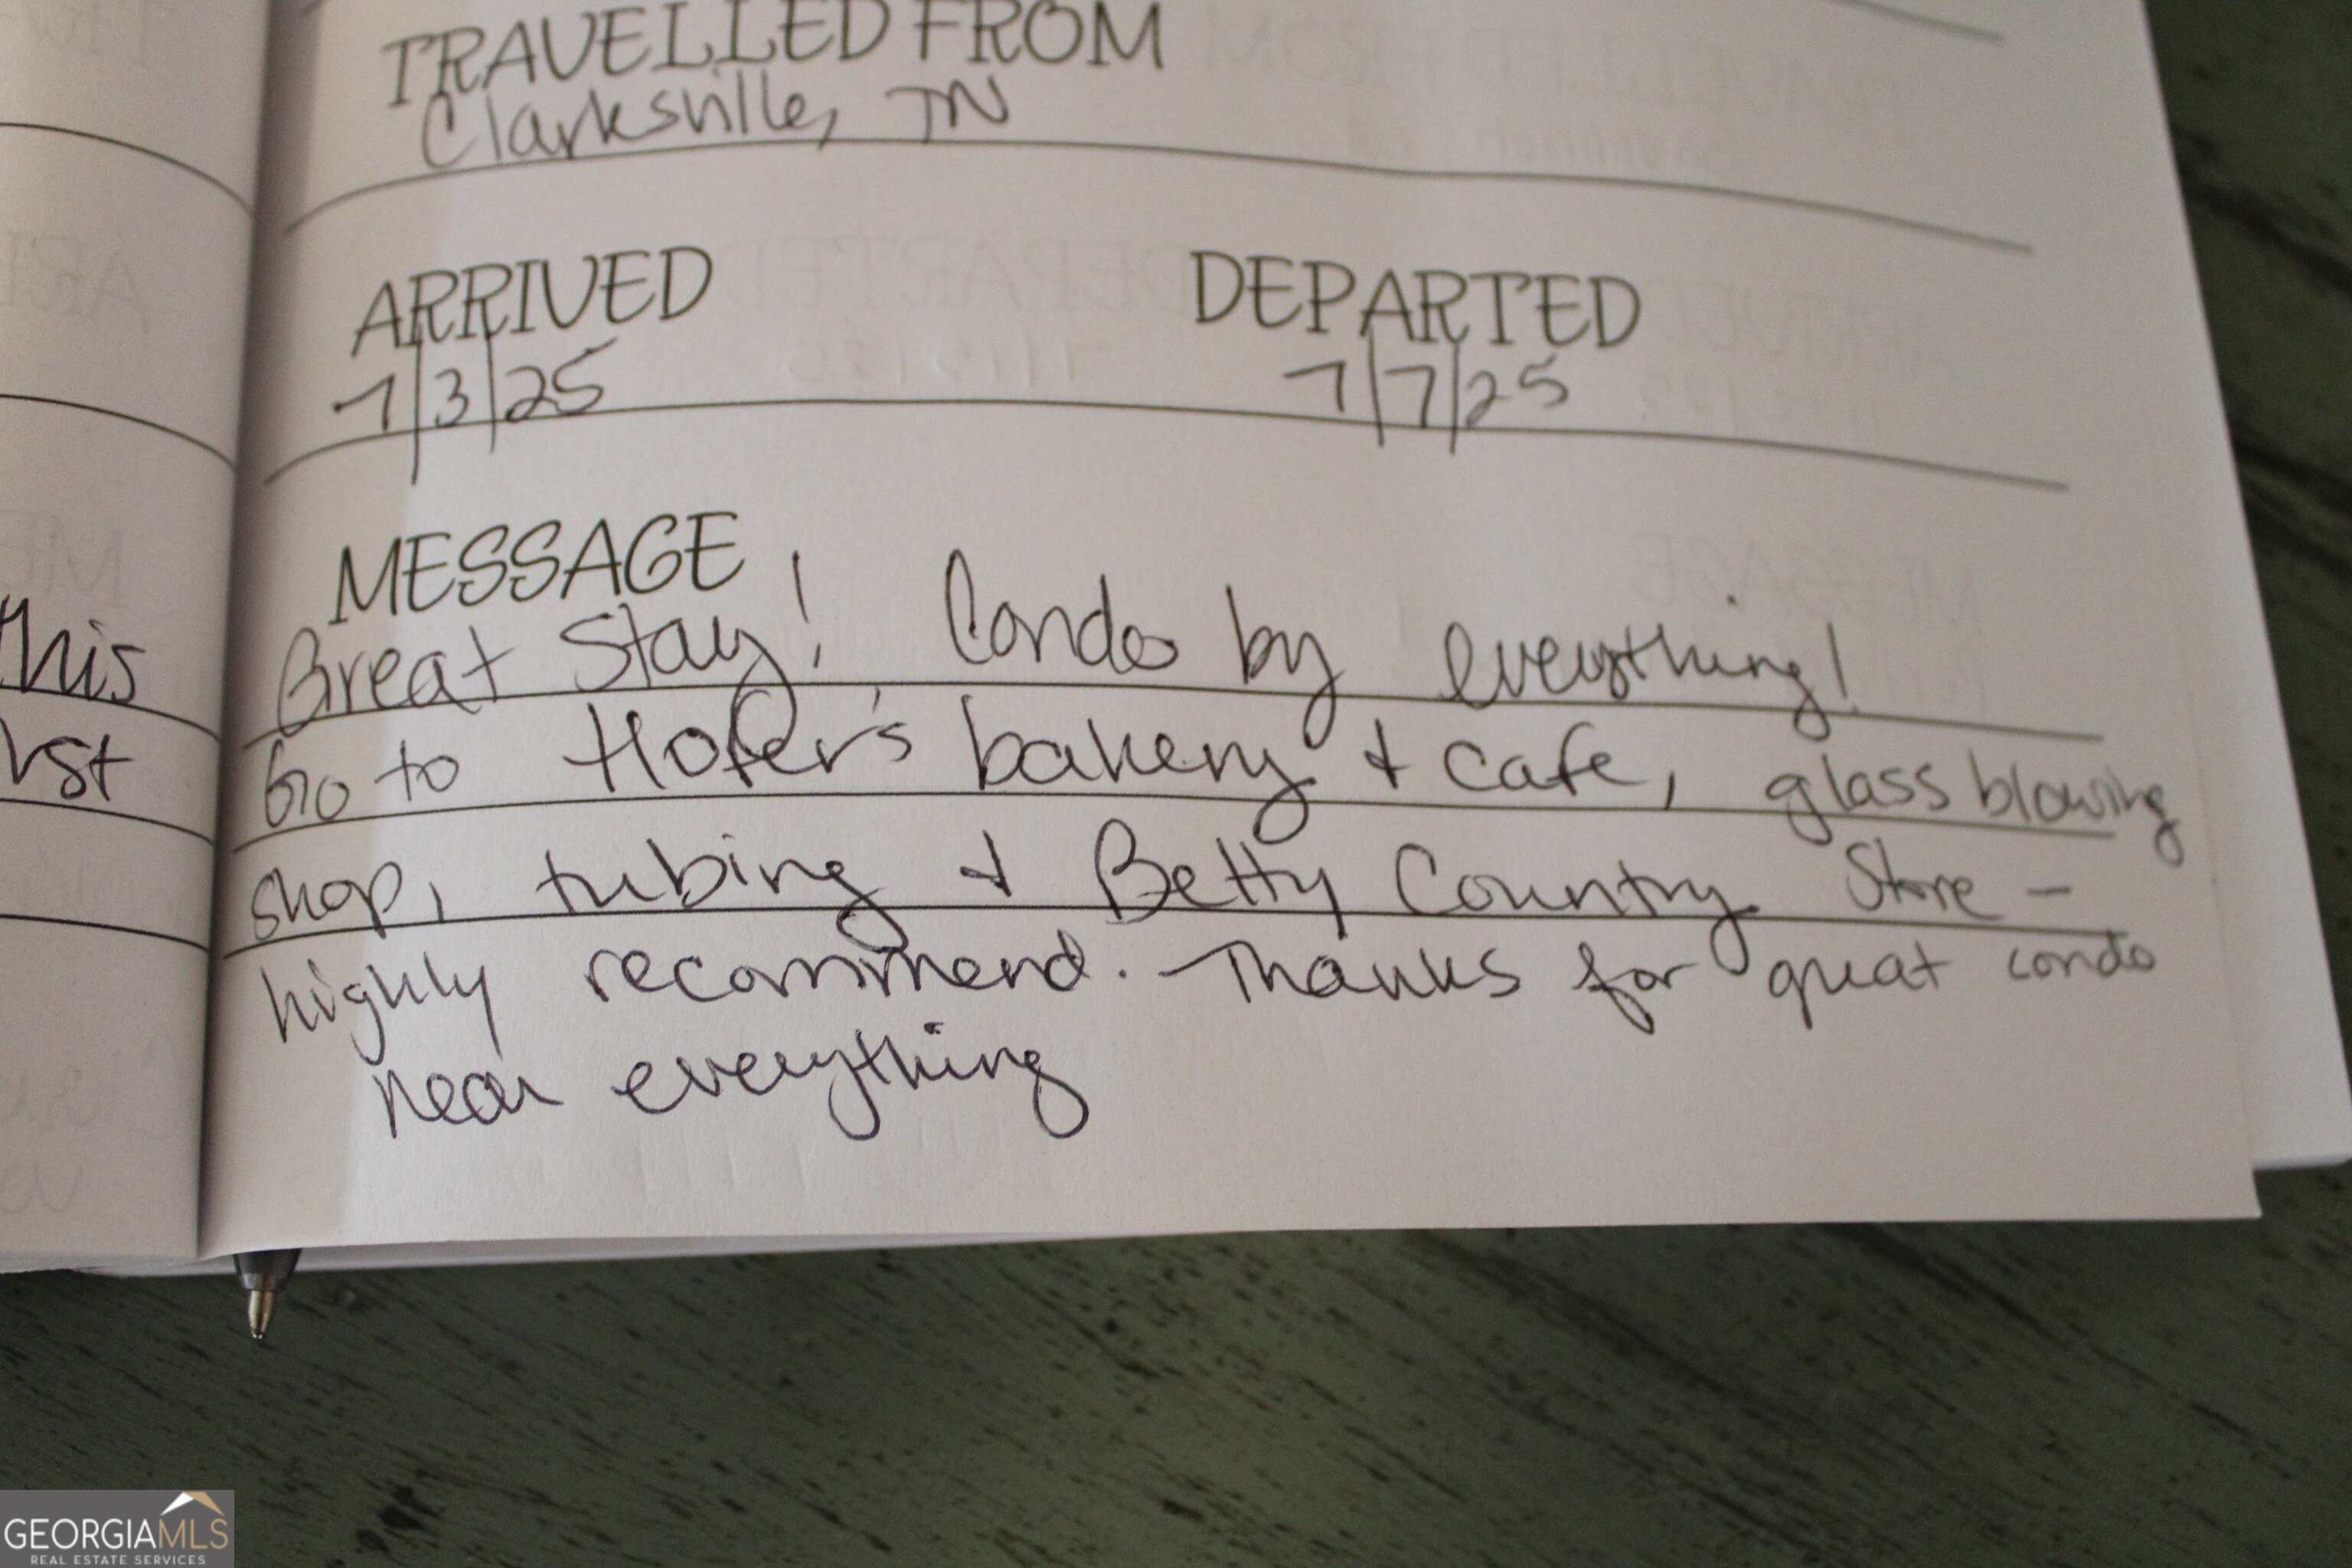 TRAVELLED FROM
Clarksville, TN
ARRIVED DEPARTED
7/3/25 7/7/25
MESSAGE
Great Stay! Condo by everything!
Go to Hofer's bakery & cafe, glass blowing
shop, tubing & Betty Country Store -
highly recommend. Thanks for great condo
near everything
this
rst
GEORGIAMLS
REAL ESTATE SERVICES